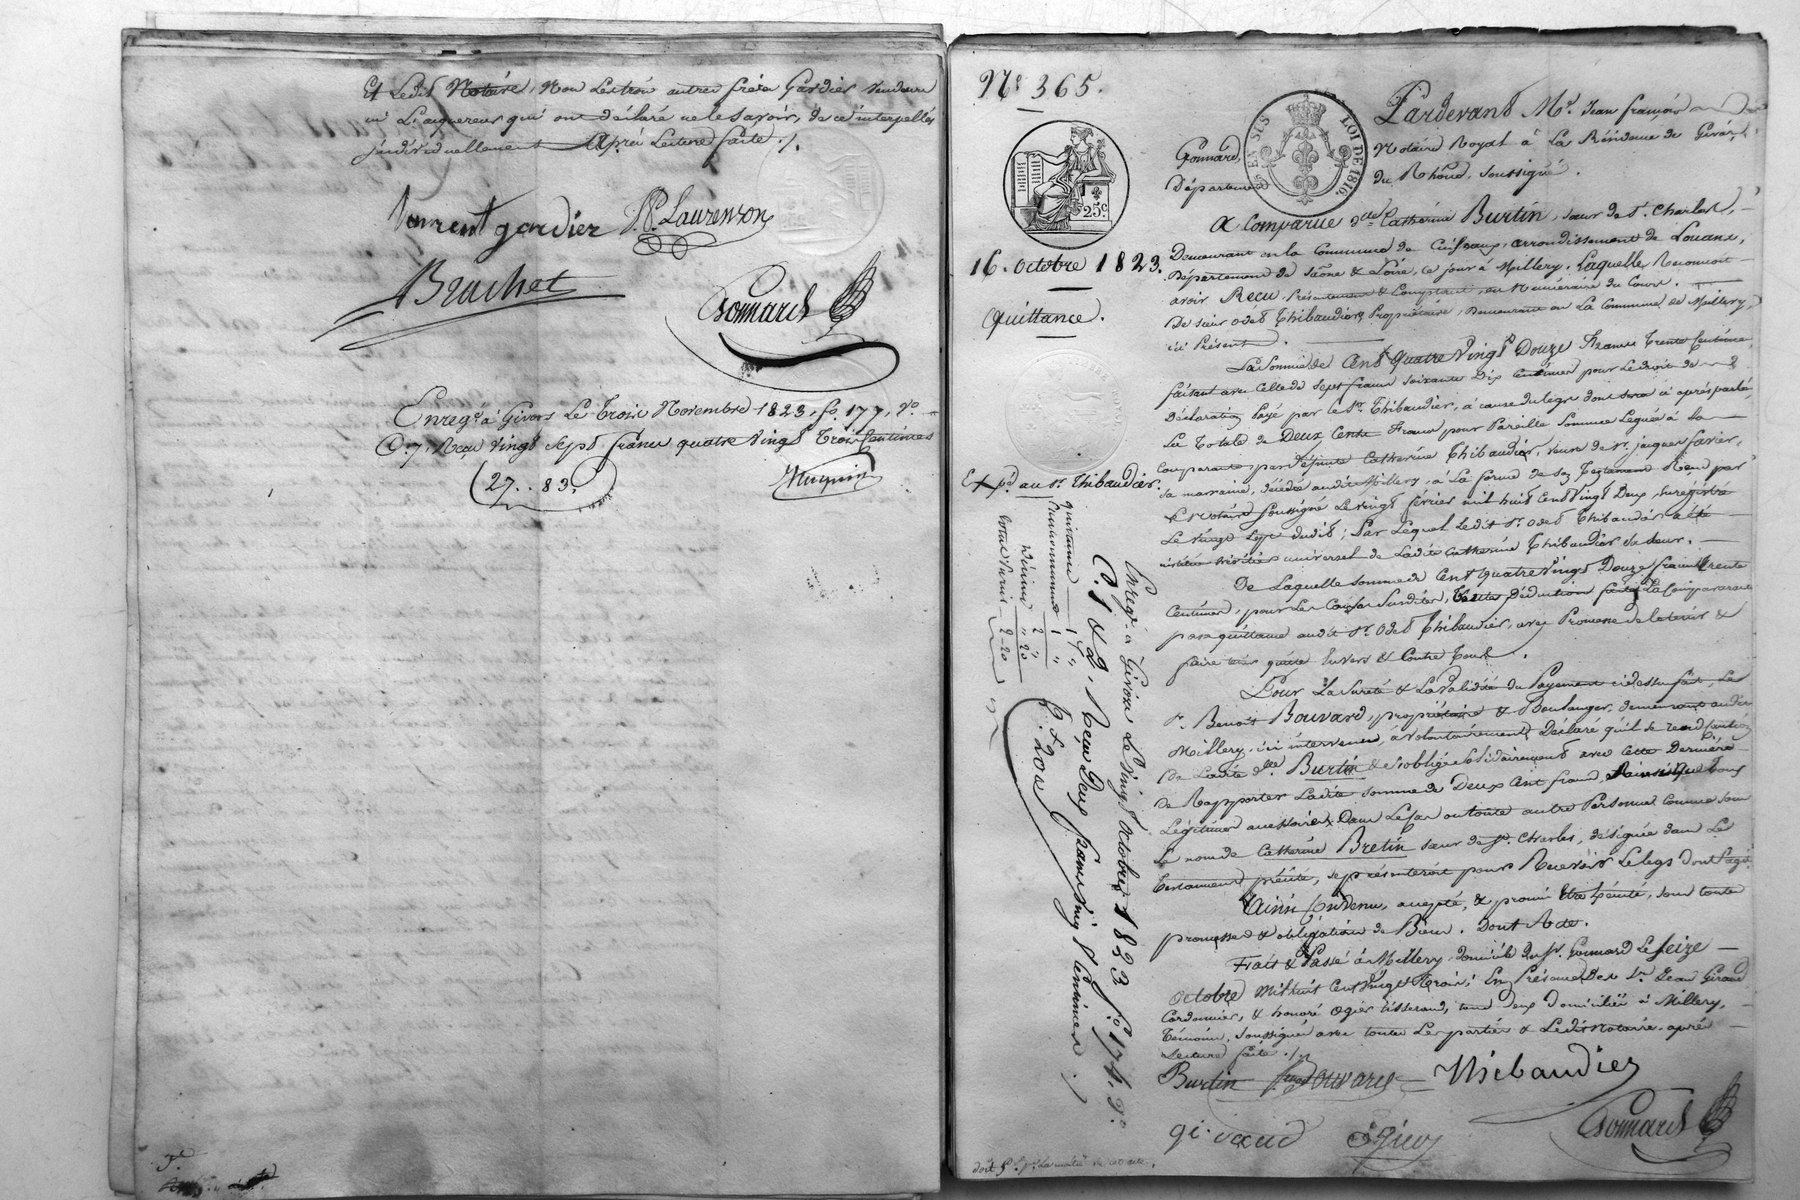 Et Ledit Notaire, Non Les trois autres frères Gardier vendeurs
ni L'acquereur qui ont déclaré ne le savoir, de ce interpellés
individuellement Après Lecture faite ./.
Vincent gardier P. Laurenson
Brachet
Gonnard
Enregé à Givors Le trois Novembre 1823, fo 177, Vo
C. 7, Reçu vingt sept francs quatre vingt trois Centimes
27..83.
No 365.
Pardevant Me Jean françois
Gonnard, Notaire Royal à La Résidence de Givors,
Département du Rhône, soussigné.
EN SUS LOI DE 1816.
25c
16. octobre 1823.
Quittance.
A Comparue dlle Catherine Burtin, sœur de St. Charles,
Demeurant en la Commune de Cuiseaux, arrondissement de Louans,
Département de Saône & Loire, ce jour à Millery, Laquelle Reconnoit
avoir Reçu Présentement & Comptant, en Numéraire du Cours.
De sieur odet Thibaudier, Propriétaire, Demeurant en La Commune de Millery,
ici Présent.
La Somme de Cent Quatre Vingt Douze francs trente Centimes,
faisant avec Celle de sept francs soixante Dix Centimes pour Le droit de
Déclaration Payé par le Sr. Thibaudier, à cause du legs dont sera ci après parlé,
La totale de Deux Cents francs pour Pareille somme Léguée à La
Comparante par défunte Catherine Thibaudier, veuve de Sr. jacques favier,
sa marraine, décédée audit Millery, à La forme de son Testament Reçu par
le Notaire soussigné Le vingt février mil huit Cent Vingt Deux, enregistré
Le vingt Sept dudit; Par Lequel Ledit Sr. odet Thibaudier a été
institué héritier universel de Ladite Catherine Thibaudier sa sœur.
Expé au Sr. Thibaudier.
De Laquelle somme de Cent quatre Vingt Douze francs trente
Centimes, pour Les Causes Susdites, La Comparante
passe quittance audit Sr. Odet Thibaudier, avec Promesse de l'en tenir &
faire tenir quitte Envers & Contre tous.
Pour La Sureté & La Validité du Payement ci dessus fait, Le
Sr. Benoit Bouvard, propriétaire & Boulanger, demeurant audit
Millery, ici intervenu, a volontairement Déclaré qu'il se rend Caution
De Ladite dlle Burtin & s'oblige solidairement avec Cette Dernière
De Rapporter Ladite somme de Deux Cent francs, Ainsi que tous
Légitimes accessoires, Dans Le Cas ou toute autre Personne Connue sous
Le nom de Catherine Bretin sœur de St. Charles, désignée dans Le
testament précité, se présenteroit pour Recevoir Le legs dont s'agit
Ainsi Convenu, accepté, & promis Etre Exécuté, sous toute
promesse & obligation de Biens. Dont Acte.
Fait & Passé à Millery, domicile du Sr. Gonnard Le seize
octobre Mil huit Cent Vingt Trois; En Présence Des Srs Jean Giraud
Cordonnier, & honoré ogier tisserand, tous deux domiciliés à Millery,
Témoins, Soussignés avec toutes Les parties & Ledit Notaire, après
Lecture faite ./.
Burtin Bouvard Thibaudier
giraud ogier Gonnard
Enregé à Givors Le Vingt Octobre 1823 fo 174. Vo
C. 1 & 2, Reçu Deux francs Vingt Centimes.
2 f. 20 c
Quittance 1 "
Cautionnement 1 "
2 "
Décime " 20
Total 2 20